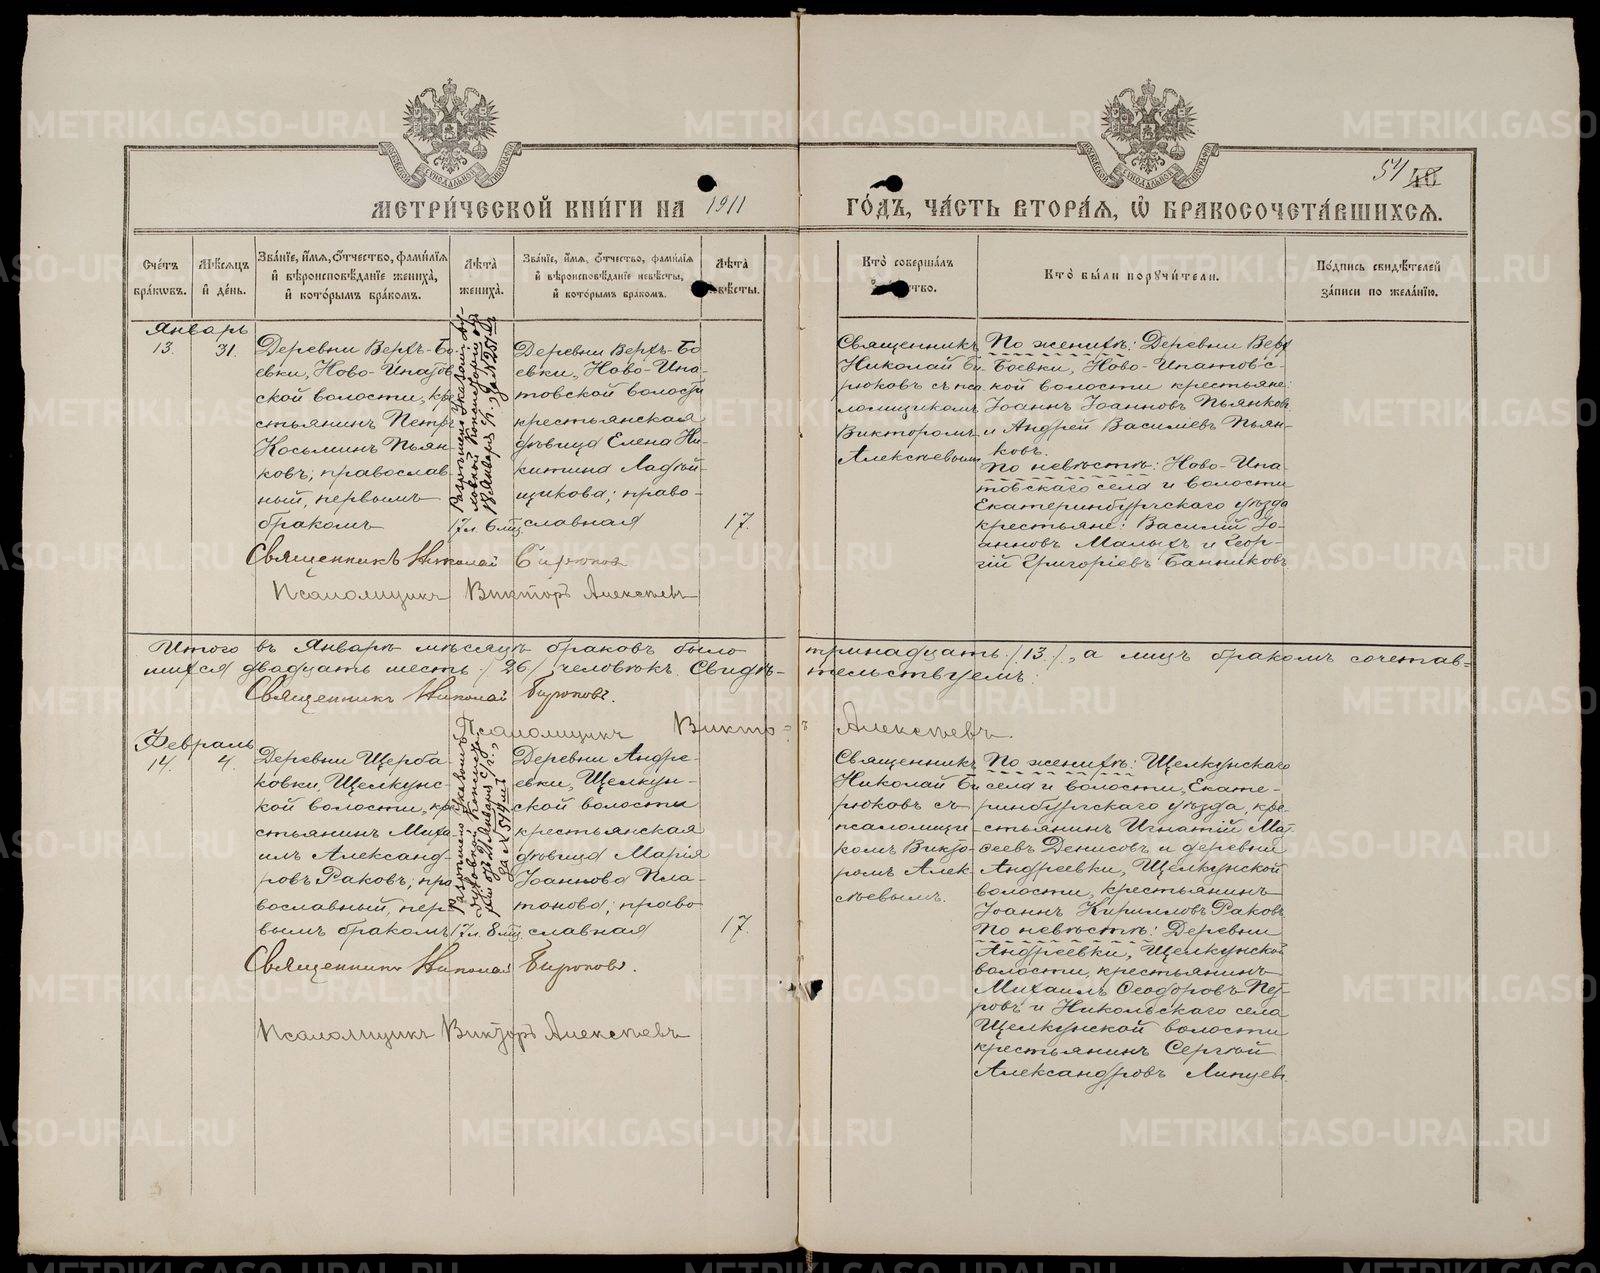 54 40
МЕТРИ́ЧЕСКОЙ КНИ́ГИ НА 1911 ГО́ДЪ, ЧА́СТЬ ВТОРА́Я, Ѡ БРАКОСОЧЕТА́ВШИХСЯ.
Сче́тъ бра́кѡвъ.
Мѣ́сяцъ и де́нь.
Зва́нїе, и́мя, о́тчество, фами́лїя
и вѣроисповѣ́данїе жениха̀,
и кото́рымъ бра́комъ.
Лѣ́та жениха̀.
Зва́нїе, и́мя, о́тчество, фами́лїя
и вѣроисповѣ́данїе невѣ́сты,
и кото́рымъ бра́комъ.
Лѣ́та
Кто̀ соверша́лъ
Кто̀ бы́ли поручи́тели.
По́дпись свидѣ́телей
за́писи по жела́нїю.
Январь
13. 31.
Деревни Верхъ-Бо-
евки, Ново-Ипатов-
ской волости, кре-
стьянинъ Петръ
Косьминъ Пьян-
ковъ; православ-
ный, первымъ
бракомъ
17 л. 6 мц.
Деревни Верхъ-Бо-
евки, Ново-Ипа-
товской волости
крестьянская
дѣвица Елена Ни-
китина Ладѣй-
щикова; право-
славная
17.
Священникъ
Николай Би-
рюковъ съ пса-
ломщикомъ
Викторомъ
Алексѣевымъ
По женихѣ: Деревни Верх
Боевки, Ново-Ипатовс-
кой волости крестьяне:
Іоаннъ Іоанновъ Пьянков
и Андрей Василіевъ Пьян-
ковъ.
По невѣстѣ: Ново-Ипа-
товскаго села и волости
Екатеринбургскаго уѣзда
крестьяне: Василій Іо-
анновъ Малыхъ и Геор-
гій Григоріевъ Банниковъ
Священникъ Николай Бирюковъ
Псаломщикъ Викторъ Алексѣевъ
Итого въ Январѣ мѣсяцѣ браковъ было тринадцать /13/, а лицъ бракомъ сочетав-
шихся двадцать шесть /26/ человѣкъ. Свидѣ- тельствуемъ:
Священникъ Николай Бирюковъ.
Псаломщикъ Викто ъ Алексѣевъ.
Февраль
14. 4.
Деревни Щерба-
ковки, Щелкунс-
кой волости, кре-
стьянинъ Миха-
илъ Александ-
ровъ Раковъ; пра-
вославный, пер-
вымъ бракомъ
17 л. 8 мц.
Деревни Андре-
евки, Щелкун-
ской волости
крестьянская
дѣвица Марія
Іоаннова Пла-
тонова; право
славная
17.
Священникъ
Николай Би
рюковъ съ
псаломщи-
комъ Викто-
ромъ Алек-
сѣевымъ.
По женихѣ: Щелкунскаго
села и волости, Екате-
ринбургскаго уѣзда, кре-
стьянинъ Игнатій Ма
сеевъ Денисовъ и деревни
Андреевки, Щелкунской
волости, крестьянинъ
Іоаннъ Кирилловъ Раковъ
По невѣстѣ: Деревни
Андреевки, Щелкунской
волости, крестьянинъ
Михаилъ Ѳеодоровъ Пет-
ровъ и Никольскаго села
Щелкунской волости
крестьянинъ Сергѣй
Александровъ Липцевъ.
Священникъ Николай Бирюковъ.
Псаломщикъ Викторъ Алексѣевъ
METRIKI.GASO-URAL.RU